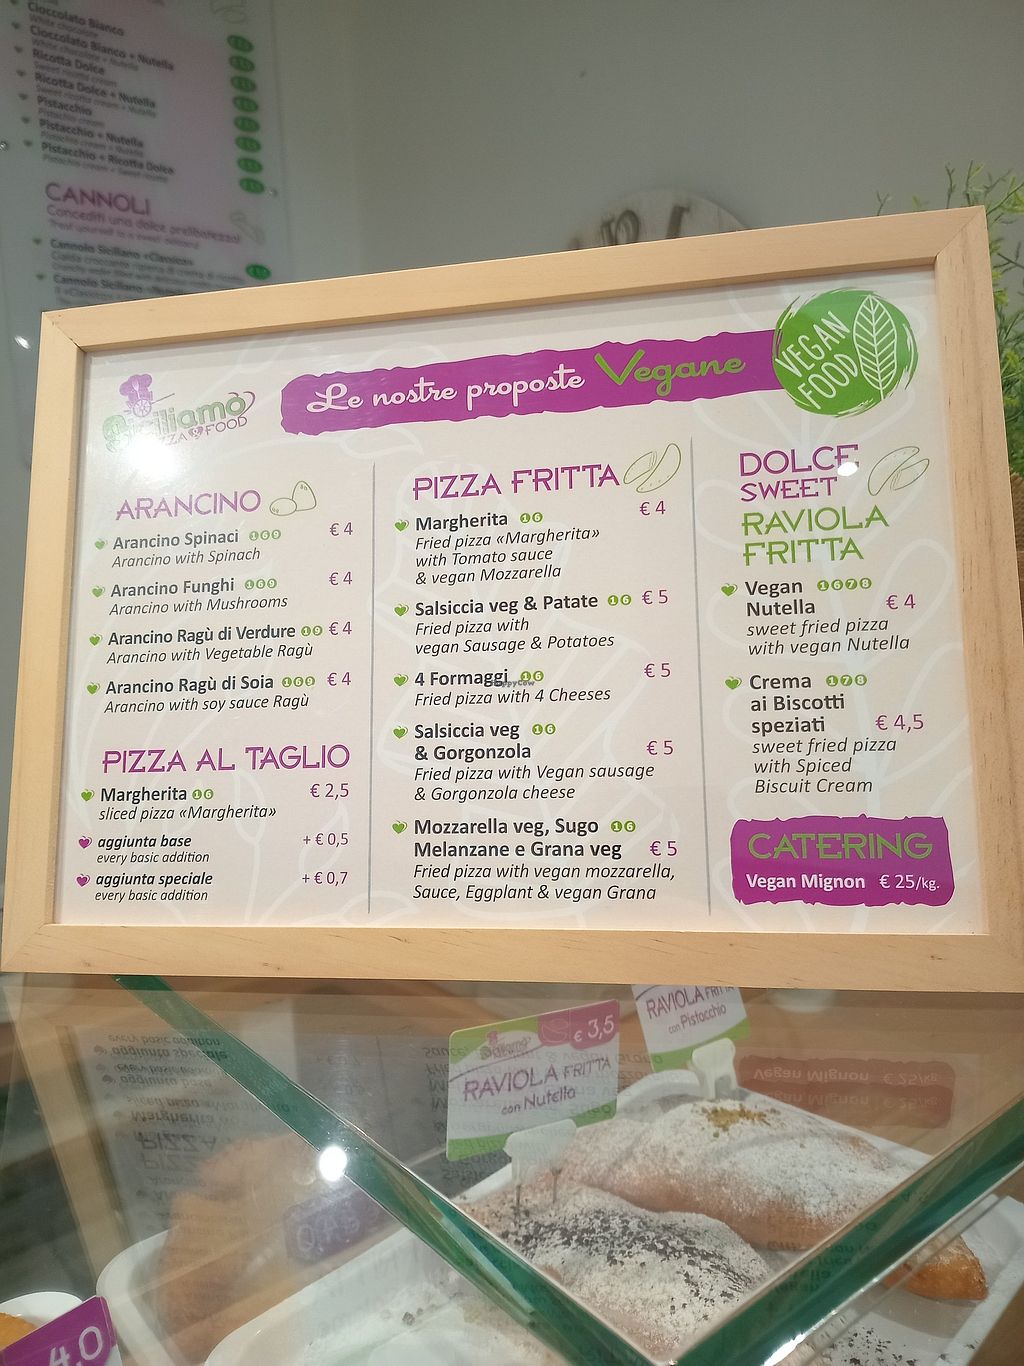 Cioccolato Bianco
White chocolate
Cioccolato Bianco + Nutella
White chocolate + Nutella
Ricotta Dolce
Sweet ricotta cream
Ricotta Dolce + Nutella
Sweet ricotta cream + Nutella
Pistacchio
Pistachio cream
Pistacchio + Nutella
Pistachio cream + Nutella
Pistacchio + Ricotta Dolce
Pistachio cream + Sweet ricotta
CANNOLI
Concediti una dolce prelibatezza!
Treat yourself to a sweet delicacy!
Cannolo Siciliano «Classico»
Siciliamo
PIZZA & FOOD
Le nostre proposte Vegane
VEGAN
FOOD
ARANCINO
Arancino Spinaci 1 6 9 € 4
Arancino with Spinach
Arancino Funghi 1 6 9 € 4
Arancino with Mushrooms
Arancino Ragù di Verdure 1 9 € 4
Arancino with Vegetable Ragù
Arancino Ragù di Soia 1 6 9 € 4
Arancino with soy sauce Ragù
PIZZA AL TAGLIO
Margherita 1 6 € 2,5
sliced pizza «Margherita»
aggiunta base + € 0,5
every basic addition
aggiunta speciale + € 0,7
every basic addition
PIZZA FRITTA
Margherita 1 6 € 4
Fried pizza «Margherita»
with Tomato sauce
& vegan Mozzarella
Salsiccia veg & Patate 1 6 € 5
Fried pizza with
vegan Sausage & Potatoes
4 Formaggi 1 6 € 5
HappyCow
Fried pizza with 4 Cheeses
Salsiccia veg 1 6
& Gorgonzola € 5
Fried pizza with Vegan sausage
& Gorgonzola cheese
Mozzarella veg, Sugo 1 6
Melanzane e Grana veg € 5
Fried pizza with vegan mozzarella,
Sauce, Eggplant & vegan Grana
DOLCE
SWEET
RAVIOLA
FRITTA
Vegan 1 6 7 8
Nutella € 4
sweet fried pizza
with vegan Nutella
Crema 1 7 8
ai Biscotti
speziati € 4,5
sweet fried pizza
with Spiced
Biscuit Cream
CATERING
Vegan Mignon € 25/kg.
€ 3,5
Siciliamo
RAVIOLA FRITTA
con Nutella
RAVIOLA FRITTA
con Pistacchio
4.0